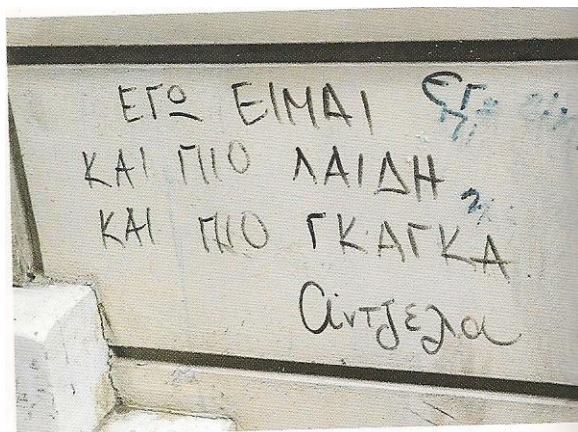 ΕΓΩ ΕΙΜΑΙ
ΚΑΙ ΠΙΟ ΛΑΙΔΗ
ΚΑΙ ΠΙΟ ΓΚΑΓΚΑ
αίντζελα